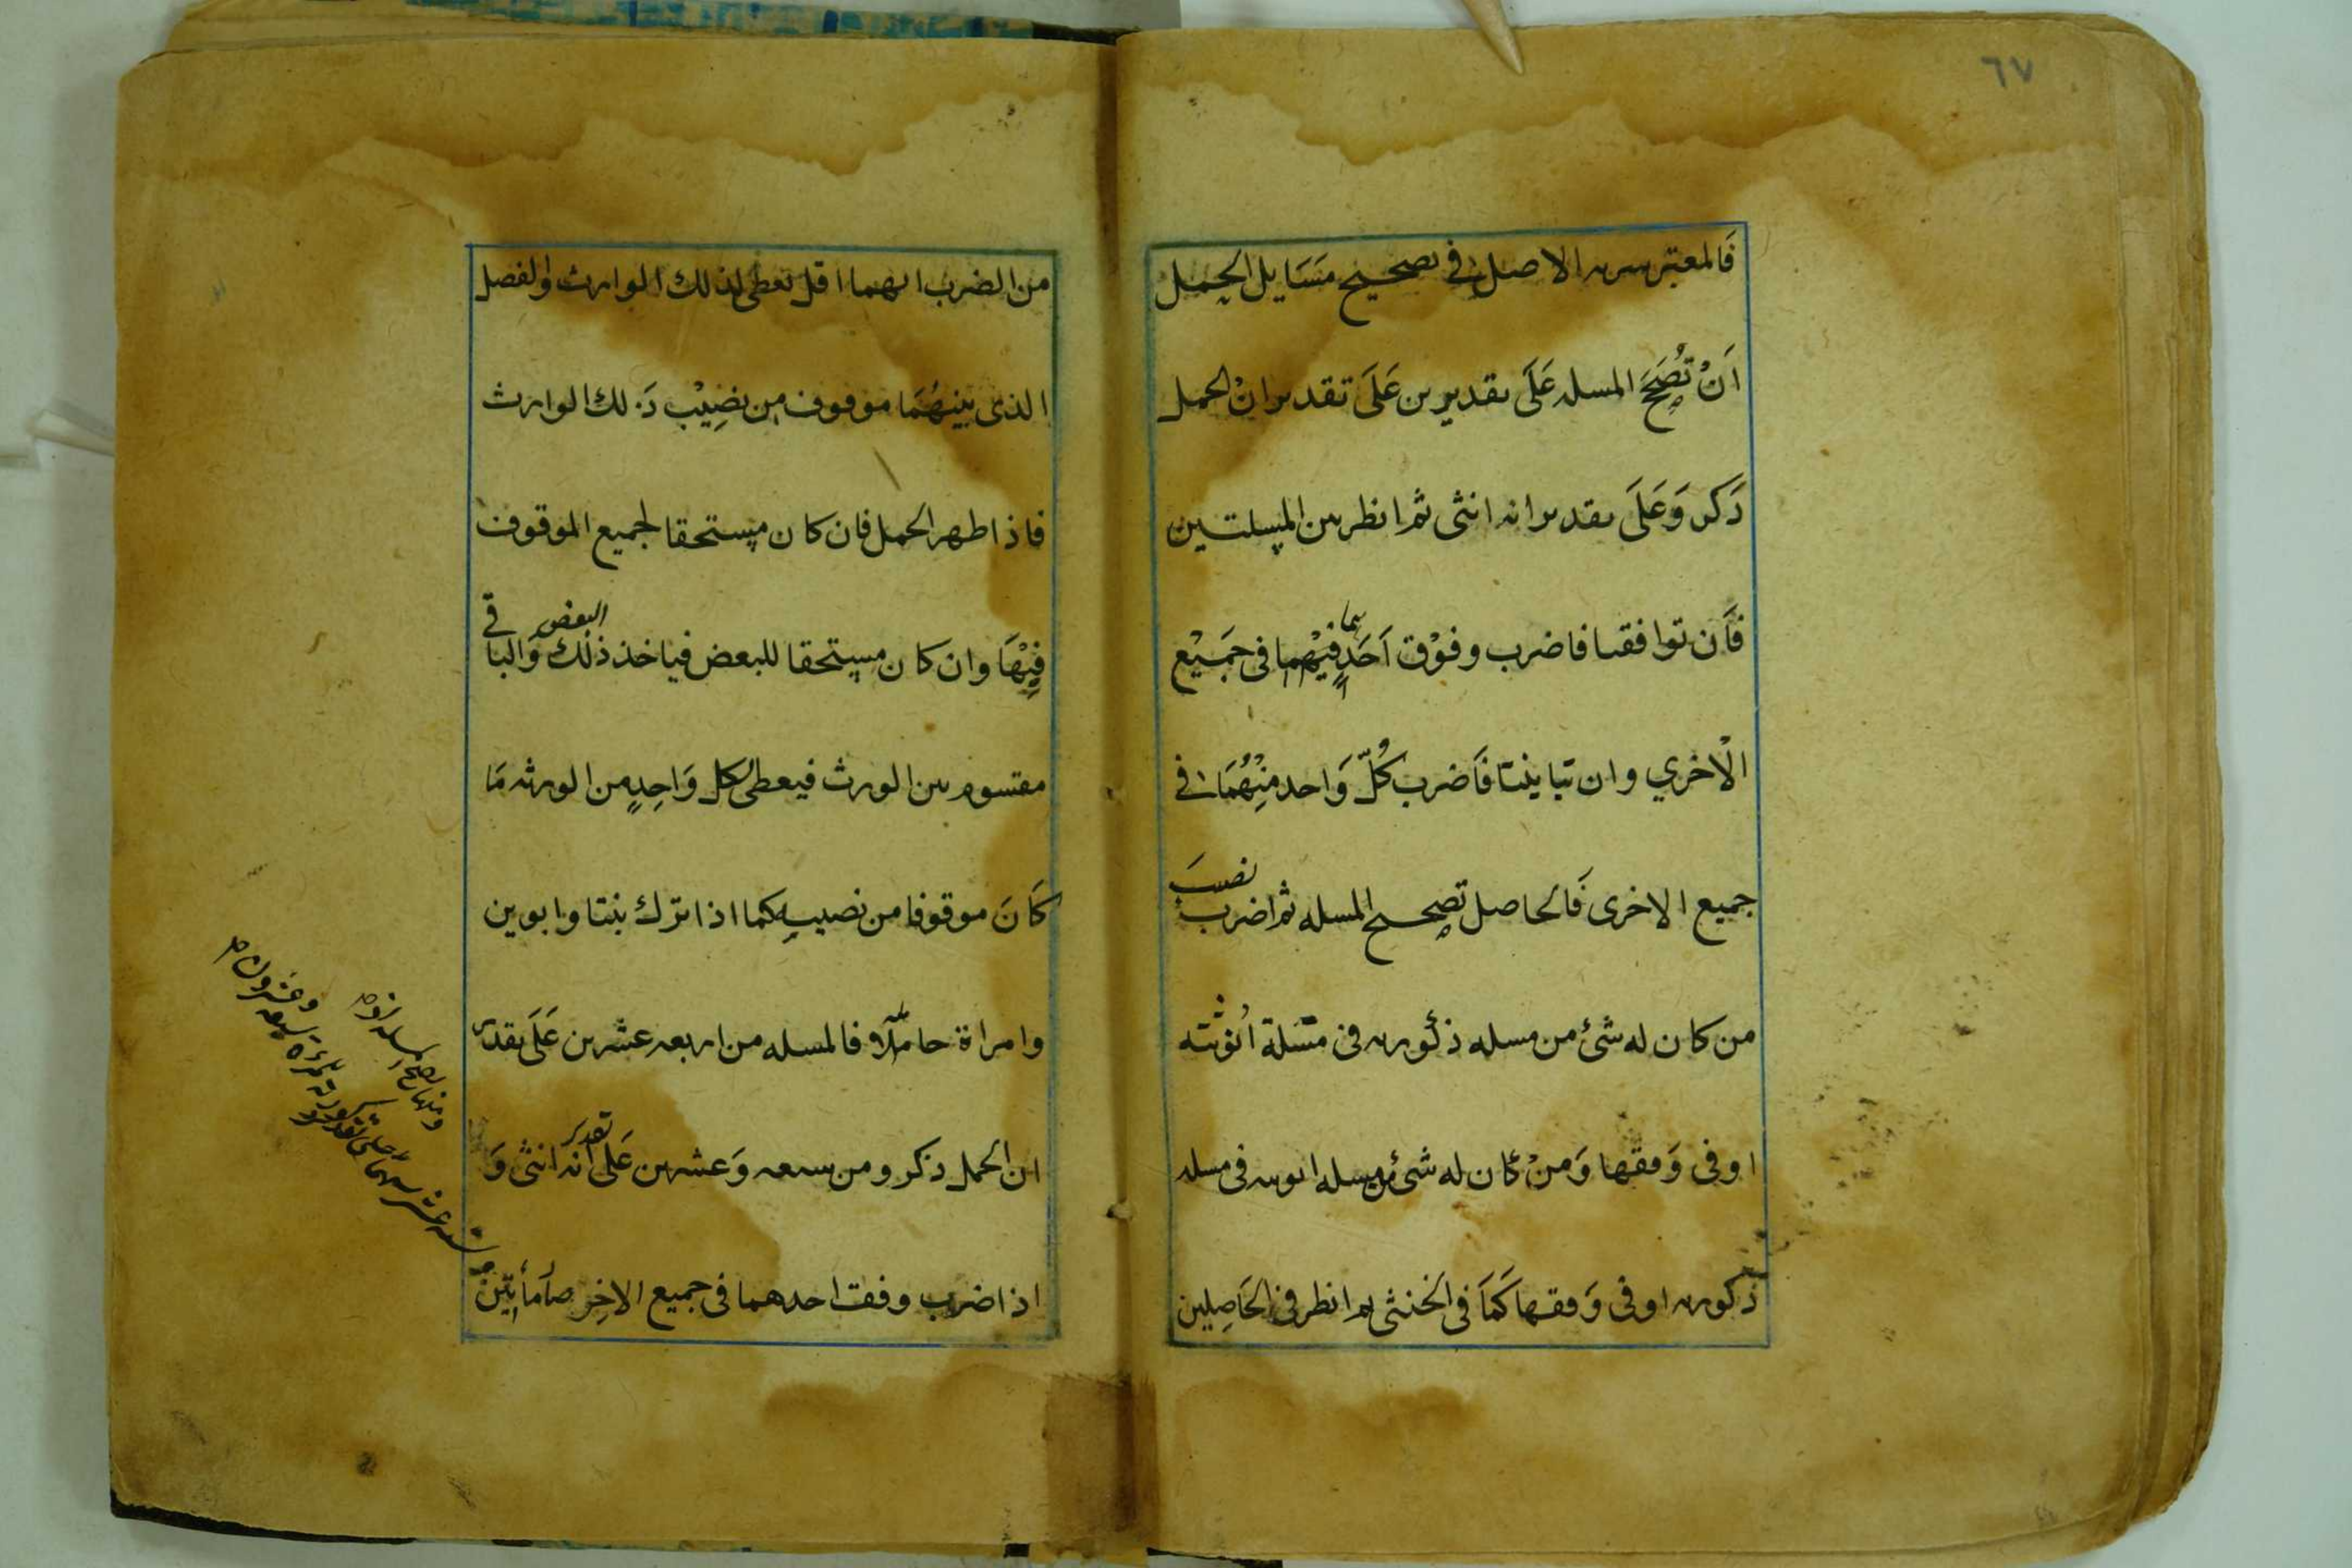 ٦٧
فَالمعتبر سرىه الاصل فى تصحيح مَسَايل الحِمل
اَنْ تُصَحَحَ المسله عَلَى تقديرين عَلَى تقدير انْ الحمل
ذَكر وَعَلَى تقدير انه انثى ثم انظر بين المسلتين
فَان توافقا فاضرب وفوْق اَحَدِهما فى جَميْع
الْاخري وان تباينتا فَاضرب كُلّ وَاحد منْهُمَا فى
جميع الاخرى فَالحاصل تصحيح المسله ثم اضرب نصيب
من كان له شئ من مسله ذكُوره فى مَسَلة اُنوثته
او فى وَفقها وَمنْ كَان له شئ من مسله انوثه فى مسله
ذكوره او فى وَفقها كَمَا فى الخنثى ثم انظر فى الحَاصِلين
من الضرب ايهما اقل تعطى لذلك الوارث والفصل
الذى بَيْنهُمَا موقوف من نصِيْب ذَلك الوارث
فاذا ظهر الحمل فان كان مستحقا لجميع الموقوف
فِيْهَا وان كان مستحقا للبعض فياخذ ذلك البعض وَالباقى
مقتسوم بين الورث فيعطى لكل وَاحِدٍ من الورثه مَا
كَانَ موقوفا من نصيبه كما اذا ترك بنتا وابوين
وامراة حاملًا فالمسله من اربعه عشرين عَلَى تقدير
ان الحمل ذكر ومن سبعه وَعشرين عَلَى تقدير انه انثى وَ
اذا ضرب وفقت احدهما فى جميع الاخِر صاَ مأَتيْن
وَستة عشر سهما على تقدير ذكورته للمرأة سبعة
وعشرون